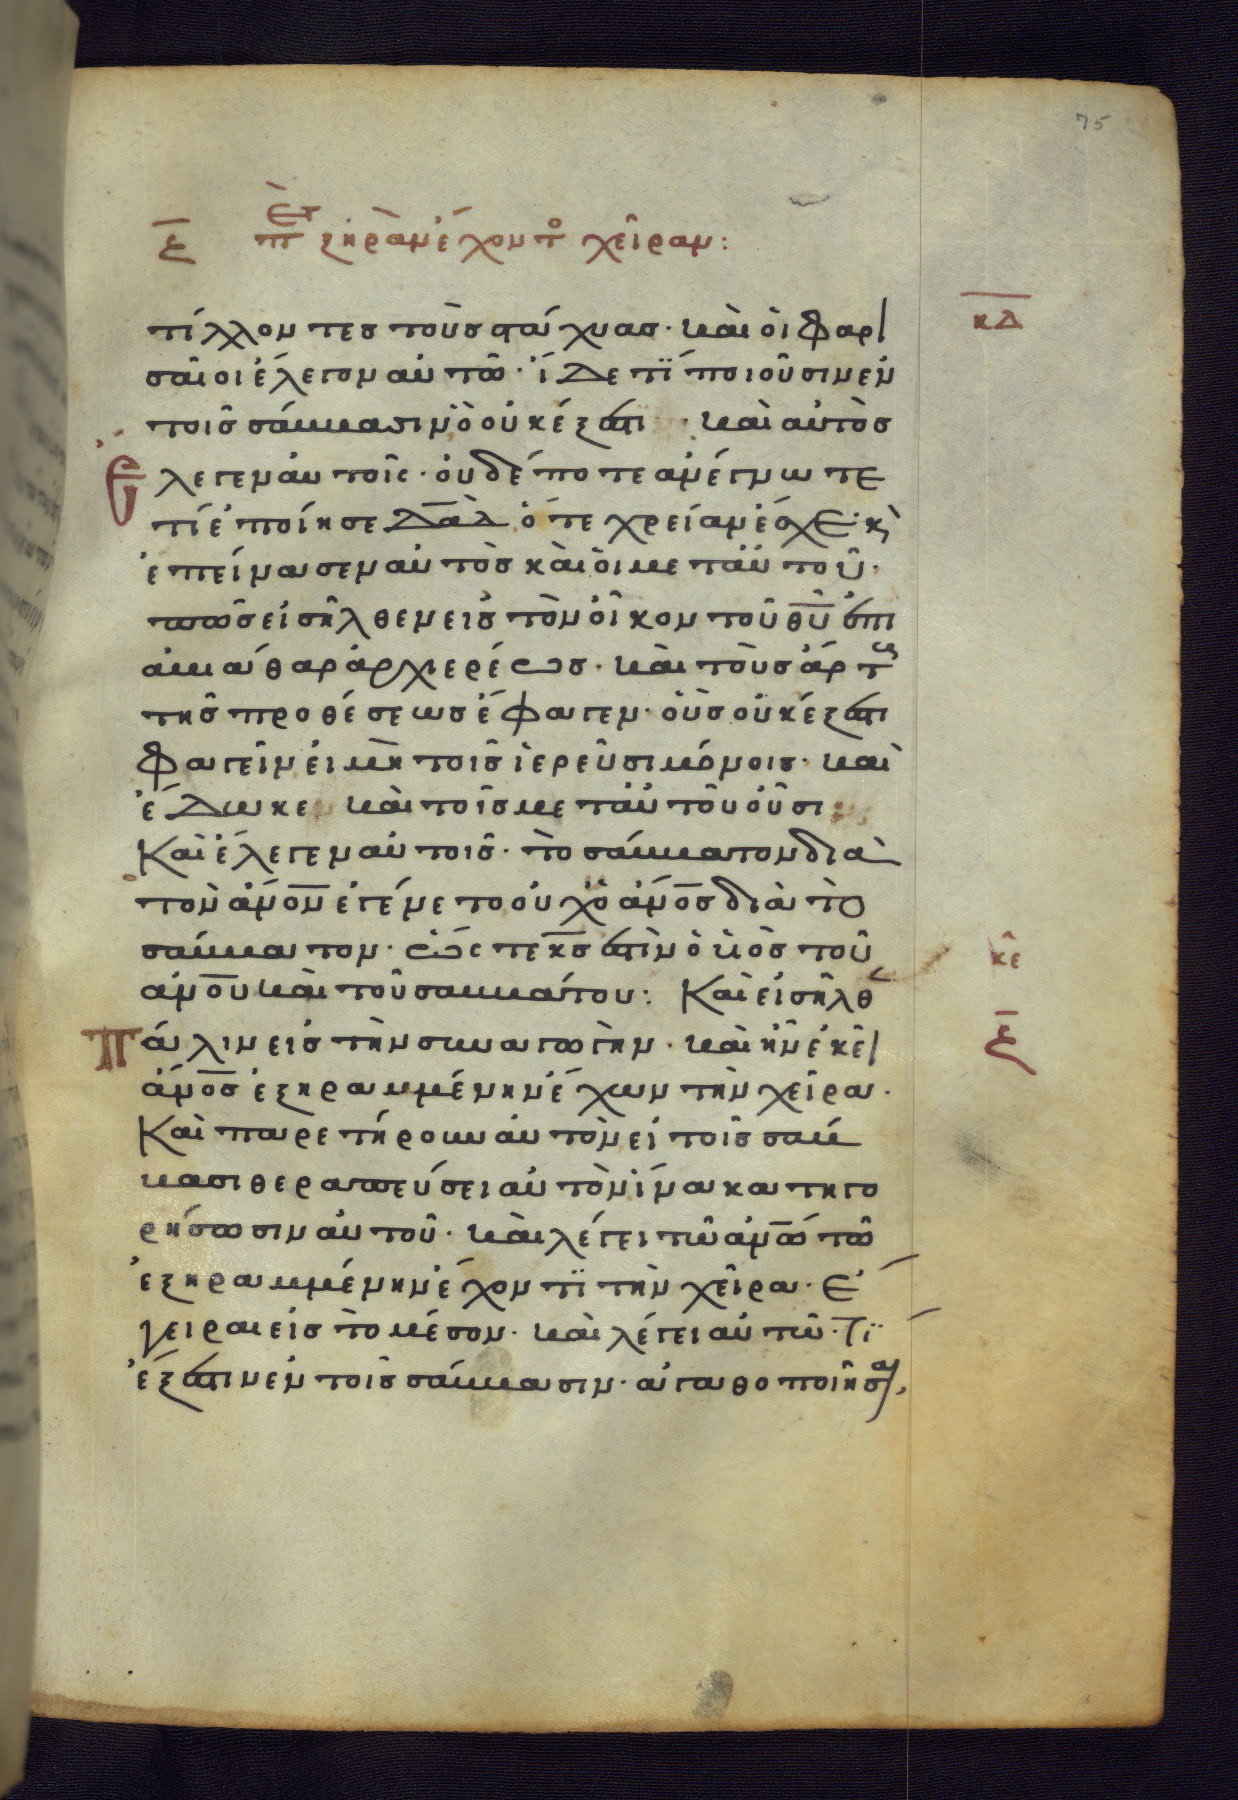 75
ϛ̅ περ ξηρὰν ἔχοντο χεῖραν:
τίλλοντες τοὺς στάχυας· καὶ οἱ φαρι
κδ̅
σαῖοι ἔλεγον αὐτῶ· ἴδε τΐ ποιοῦσιν ἐν
τοῖς σάββασιν ὃ οὐκ έξεστι· καὶ αὐτὸς
ἔλεγεν αὐτοῖς· οὐδέποτε ἀνέγνωτε
τί ἐποίησε δα̅δ ὅτε χρείαν ἔσχε· κ̀
ἐπείνασεν αὐτὸς καὶ οἱ μετ αὐτοῦ·
πῶς εἰσῆλθεν εἰς τὸν οἶκον τοῦ θυ̅ ἐπι
ἀβιάθαρ ἀρχιερέως· καὶ τοὺς ἄρτους
τῆς προθέσεως ἔφαγεν· οὓς οὔκ έξεστι
φαγεῖν εἰ μὴ τοῖς ἱερεῦσι μόνοις· καὶ
ἔδωκε καὶ τοῖς μετ αὐτοῦ οὖσι:
Καὶ ἔλεγεν αὐτοῖς· τὸ σάββατον διὰ
τὸν ἄνο̅ν ἐγένετο οὐχ ὁ ἄνο̅ς διὰ τὸ
σάββατον· ὥστε κ̅ς ἐστὶν ὁ υἱὸς τοῦ
κε̅
ἀνο̅υ καὶ τοῦ σαββάτου: Καὶ εἰσῆλθε
πάλιν εἰς τὴν συναγωγήν· καὶ ἦν ἐκεῖ
ϛ̅
ἄνο̅ς ἐξηραμμένην ἔχων τὴν χεῖρα·
Καὶ παρετήρουν αὐτὸν εἰ τοῖς σάβ
βασι θεραπεύσει αὐτὸν ἵνα κατηγο
ρήσωσιν αὐτοῦ· καὶ λέγει τῶ ἀνω̅ τῶ
ἐξηραμμένην ἔχοντϊ τὴν χεῖρα· ἔ
γειραι εἰς τὸ μέσον· καὶ λέγει αὐτῶ· Τΐ
ἔξεστιν ἐν τοῖς σάββασιν· ἀγαθοποιῆσαι,